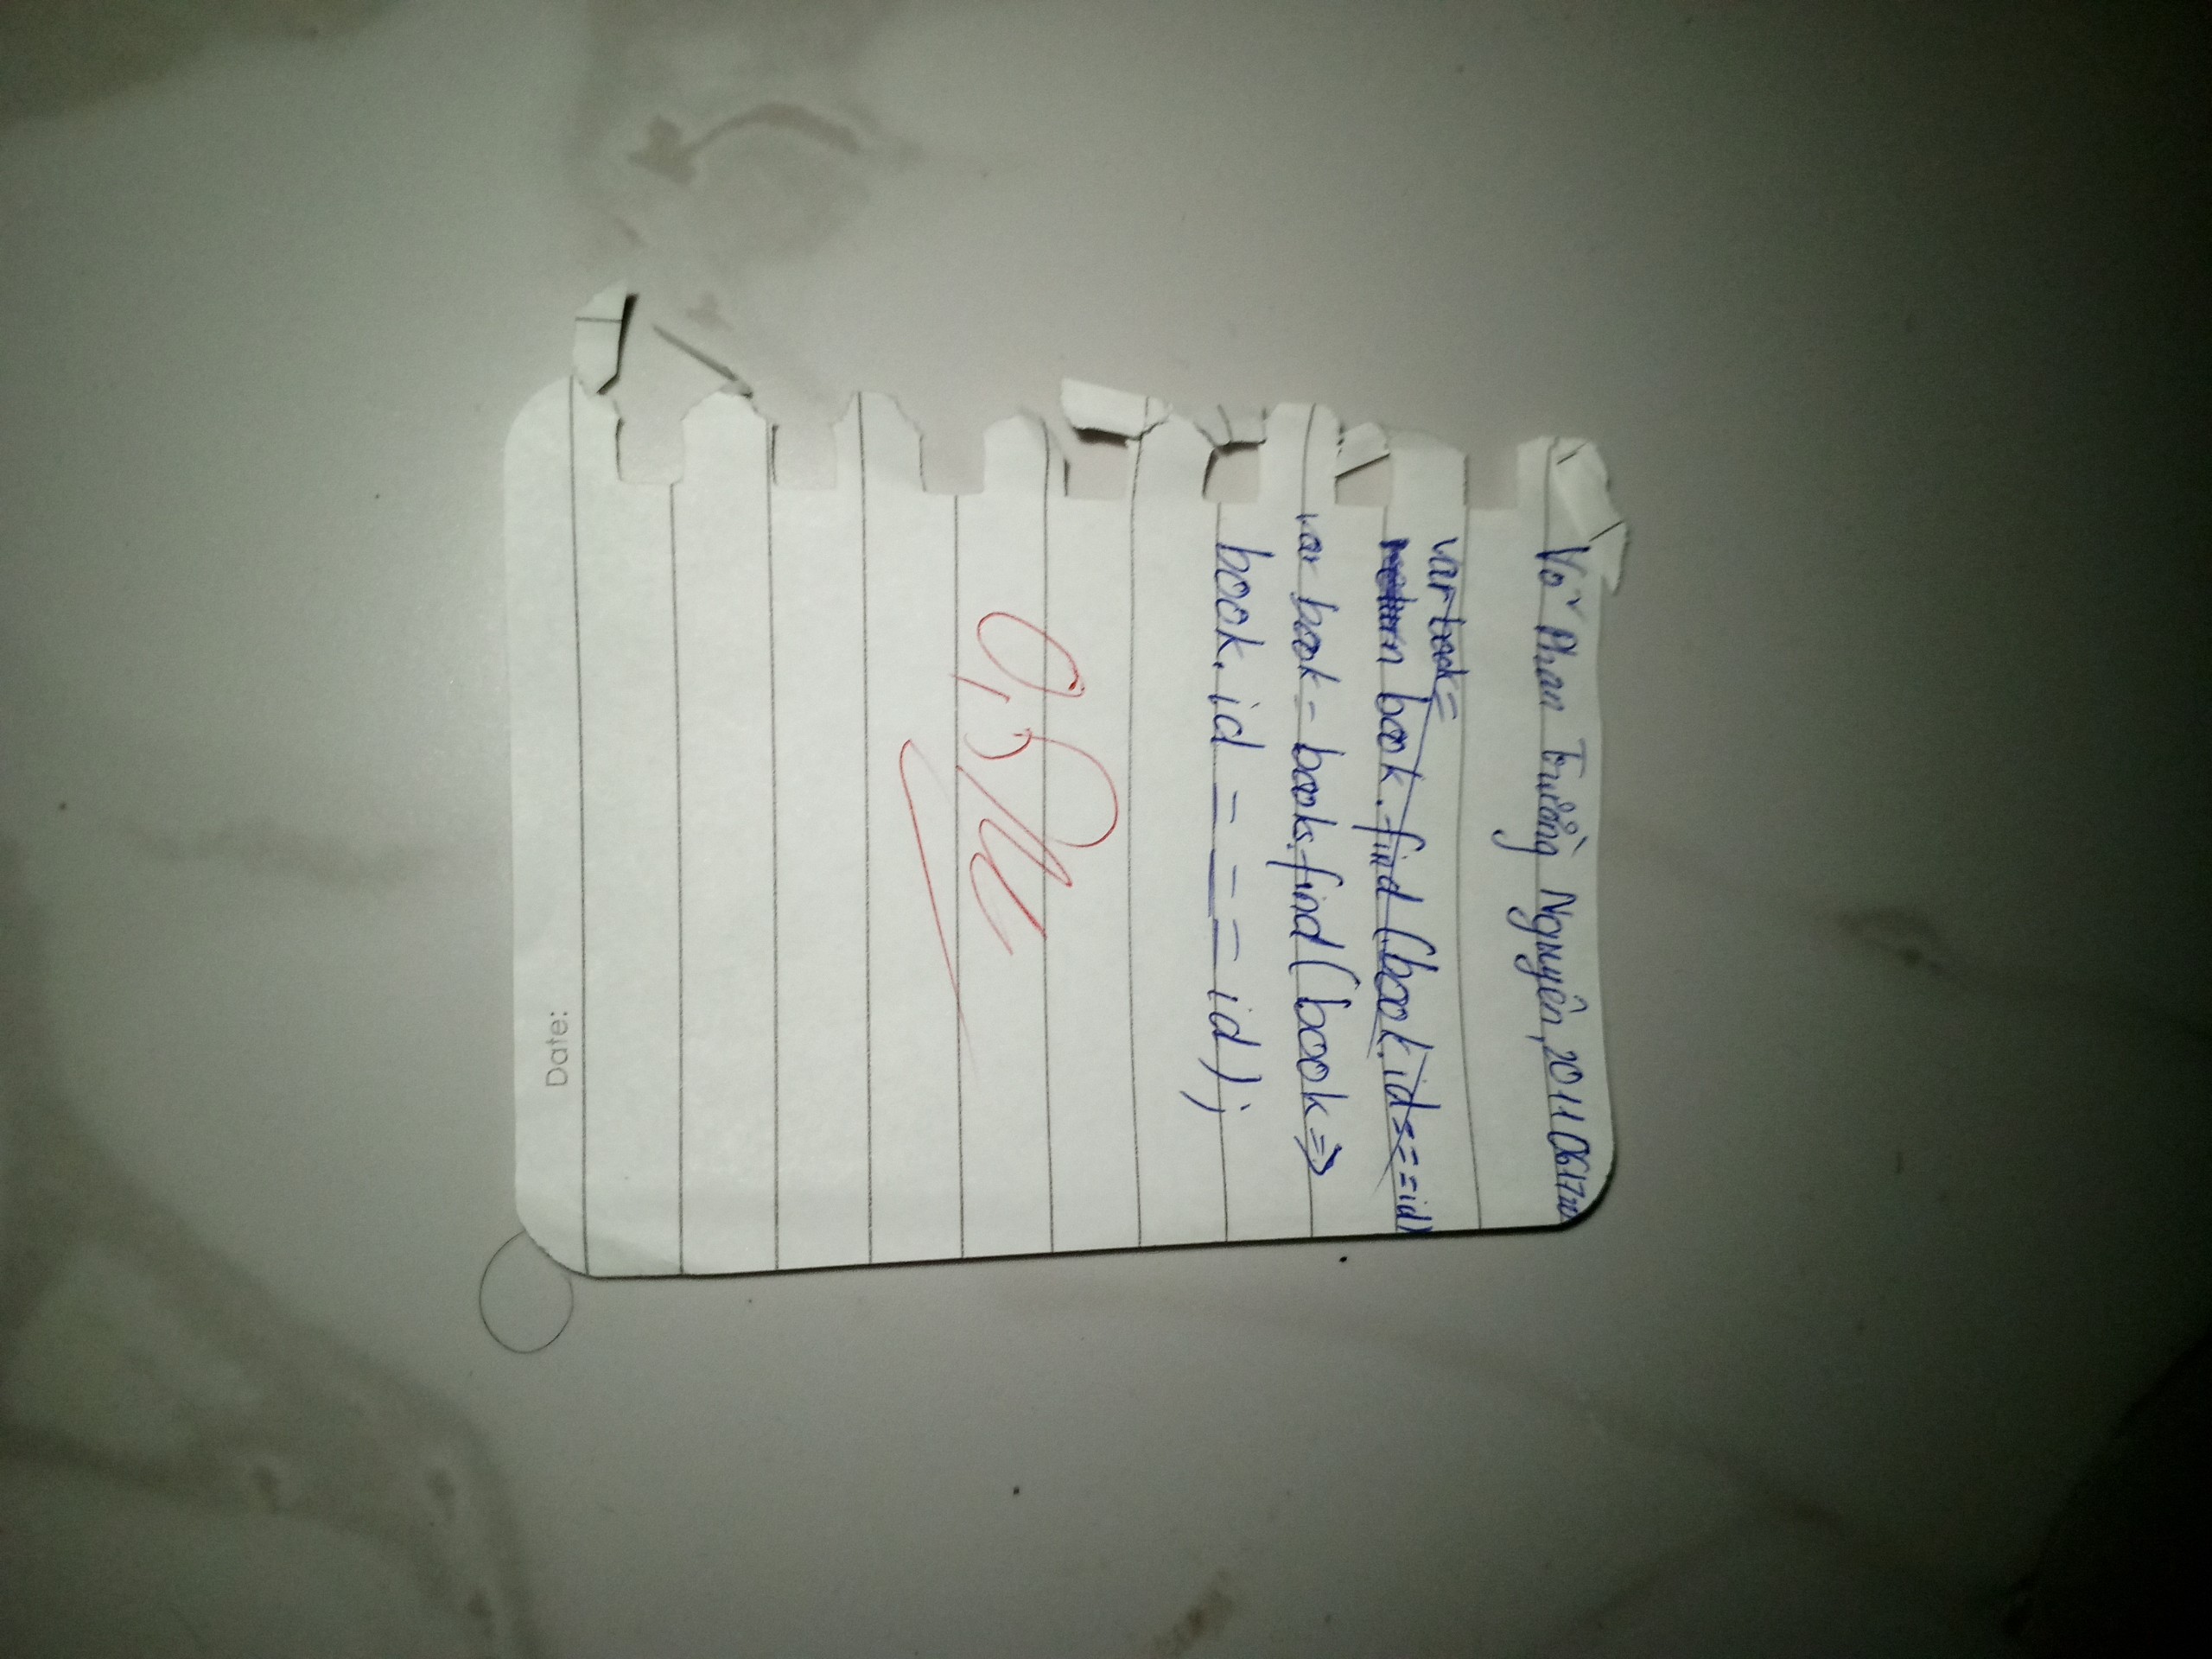 Võ Phan Trưởng Nguyên, 2011061720
var book =
return book.find(book.id===id)
var book = books.find(book =>
book.id === id);
0,5
Date: